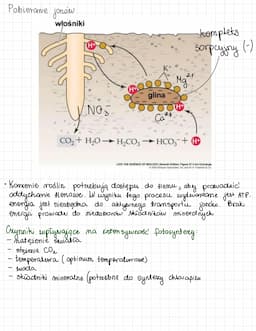 Pobieranie jonów
włośniki
kompleks
sorpcyjny (-)
H+
H+
K+
Mg2+
glina
H+
NO3
Ca2+
CO2 + H2O → H2CO3 → HCO3- + H+
• Korzenie roślin potrzebują dostępu do tlenu, aby prowadzić
oddychanie tlenowe. W wyniku tego procesu wytwarzane jest ATP.
energia jest niezbędna do aktywnego transportu jonów. Brak
energii prowadzi do niedoborów składników mineralnych
Czynniki wpływające na intensywność fotosyntezy:
- natężenie światła
- stężenie CO2
- temperatura (optimum temperaturowe)
- woda
- składniki mineralne (potrzebne do syntezy chlorofilu